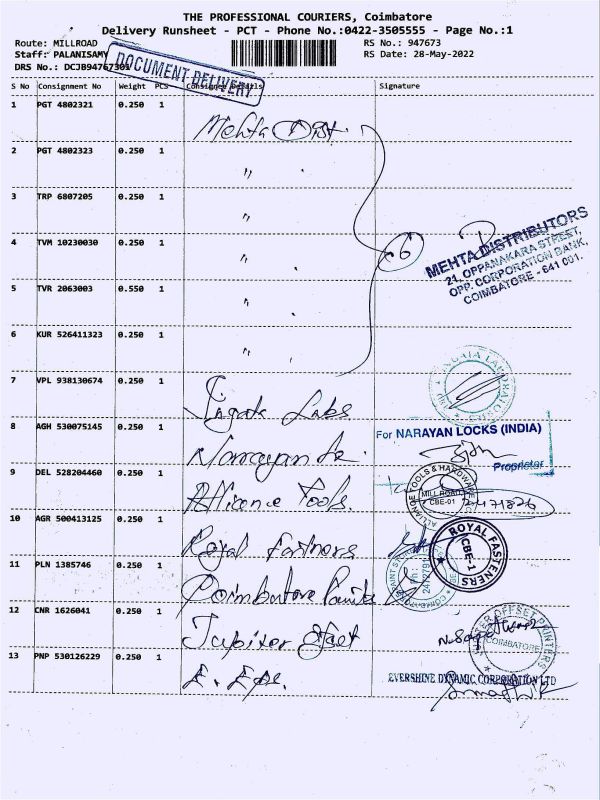 THE PROFESSIONAL COURIERS, Coimbatore
Delivery Runsheet - PCT - Phone No.:0422-3505555 - Page No.:1
Route: MILLROAD
RS No.: 947673
Staff: PALANISAMY
RS Date: 28-May-2022
DRS No.: DCJB94767301
DOCUMENT DELIVERY
S No Consignment No Weight PCS Consignee Details Signature
1 PGT 4802321 0.250 1 Mehta Dist.
2 PGT 4802323 0.250 1 "
3 TRP 6807205 0.250 1 "
4 TVM 10230030 0.250 1 " 6
MEHTA DISTRIBUTORS
21, OPPANAKARA STREET,
OPP. CORPORATION BANK,
COIMBATORE - 641 001.
5 TVR 2063003 0.550 1 "
6 KUR 526411323 0.250 1 "
7 VPL 938130674 0.250 1 Labs
8 AGH 530075145 0.250 1 Narayan
For NARAYAN LOCKS (INDIA)
Proprietor
9 DEL 528204460 0.250 1 Alliance Tools
ALLIANCE TOOLS & HARDWARE
MILL ROAD
CBE-01
10 AGR 500413125 0.250 1 Royal
ROYAL FASTENERS
CBE-1
11 PLN 1385746 0.250 1 Coimbatore Paints
12 CNR 1626041 0.250 1 Jupiter Offset
JUPITER OFFSET PRINTERS
COIMBATORE
13 PNP 530126229 0.250 1
EVERSHINE DYNAMIC CORPORATION LTD